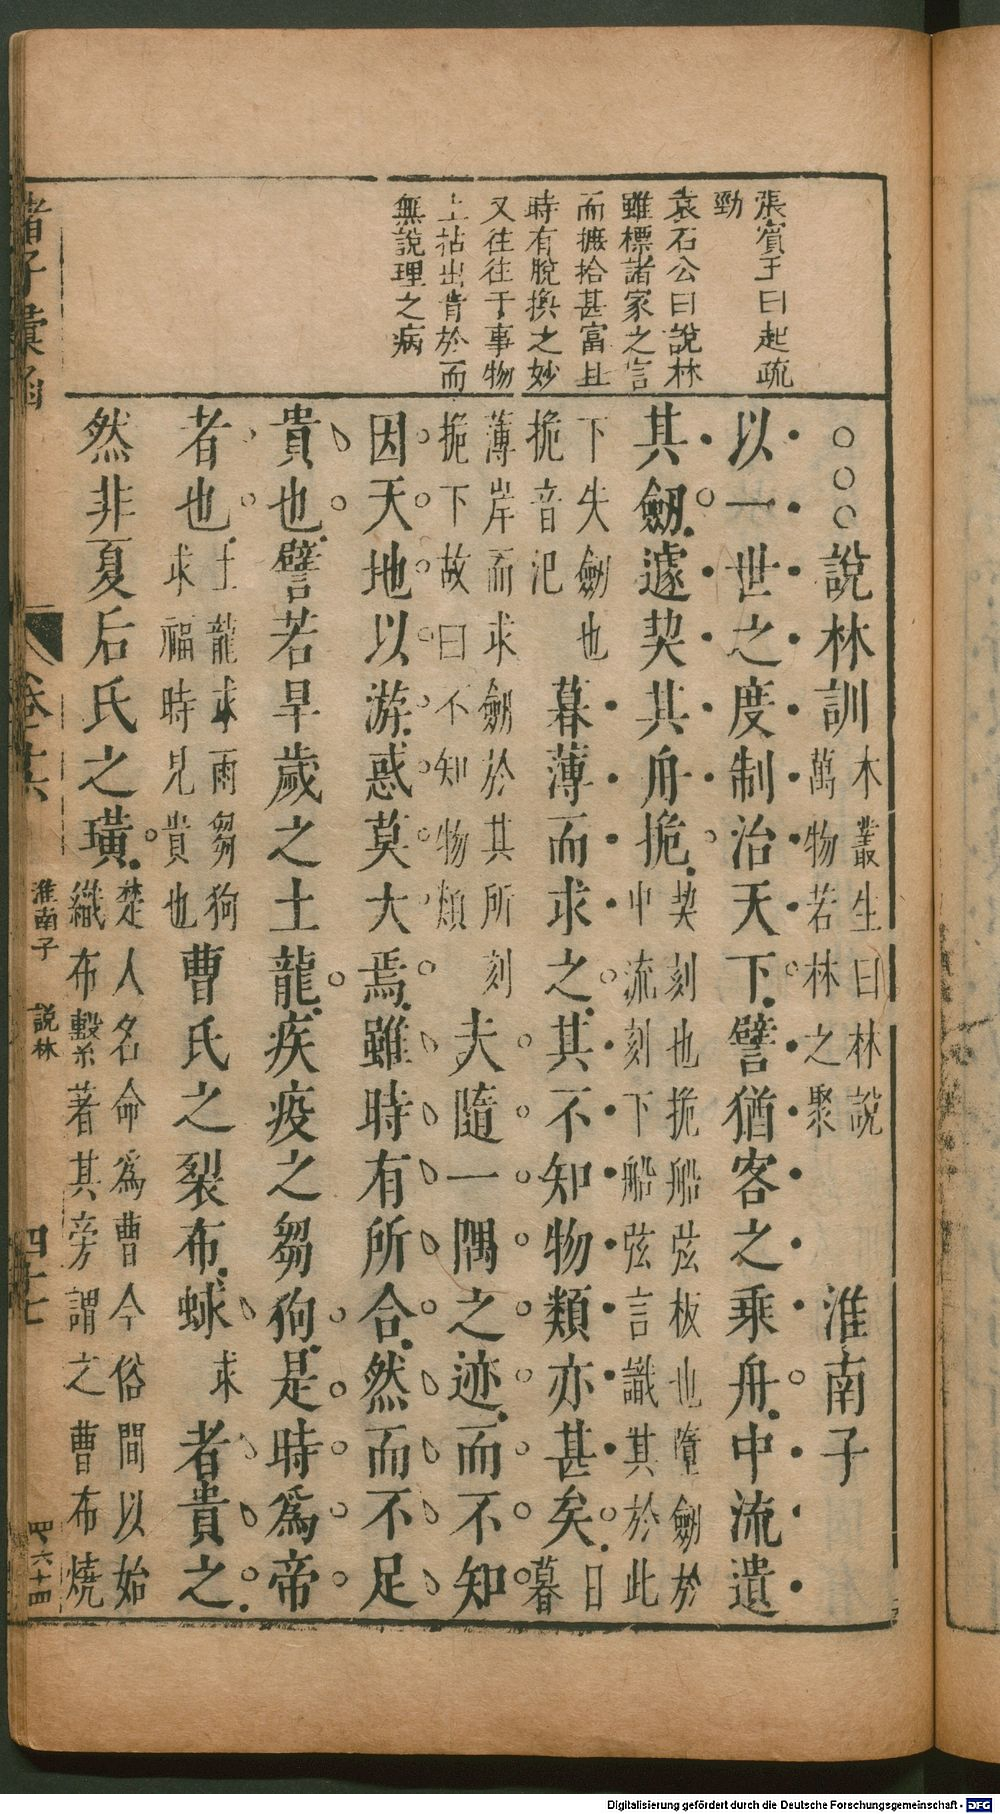 張賓王曰起疏
勁
袁石公曰說林
雖標諸家之言
而摭拾甚富且
時有脫換之妙
又往往于事物
上拈出肯於而
無說理之病
○○○說林訓 木叢生曰林說萬物若林之聚 淮南子
以一世之度制治天下譬猶客之乘舟中流遺
其劒遽契其舟桅 契刻也桅船弦板也墮劒於中流刻下船弦言識其於此
下失劒也桅音汜 暮薄而求之其不知物類亦甚矣 日暮
薄岸而求劒於其所刻桅下故曰不知物類 夫隨一隅之迹而不知
因天地以游惑莫大焉雖時有所合然而不足
貴也譬若旱歲之土龍疾疫之芻狗是時爲帝
者也 土龍求雨芻狗求福時見貴也 曹氏之裂布蛷 求 者貴之
然非夏后氏之璜 楚人名命爲曹今俗間以始織布繫著其旁謂之曹布燒
諸子彙函
卷十六
淮南子 說林
四十七
Digitalisierung gefördert durch die Deutsche Forschungsgemeinschaft - DFG